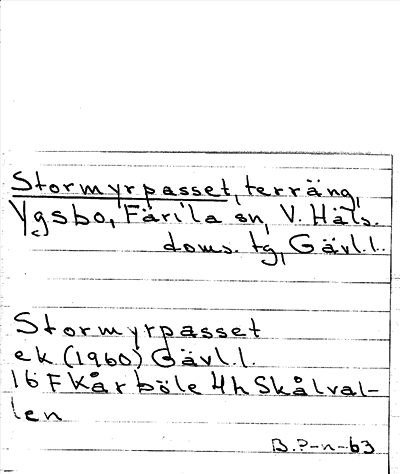 Stormyrpasset, terräng,
Ygsbo, Färila sn, V. Häls.
doms. tg, Gävl. l.
Stormyrpasset
ek (1960) Gävl. l.
16 F Kårböle 4h Skålval-
len
B. P-n-63